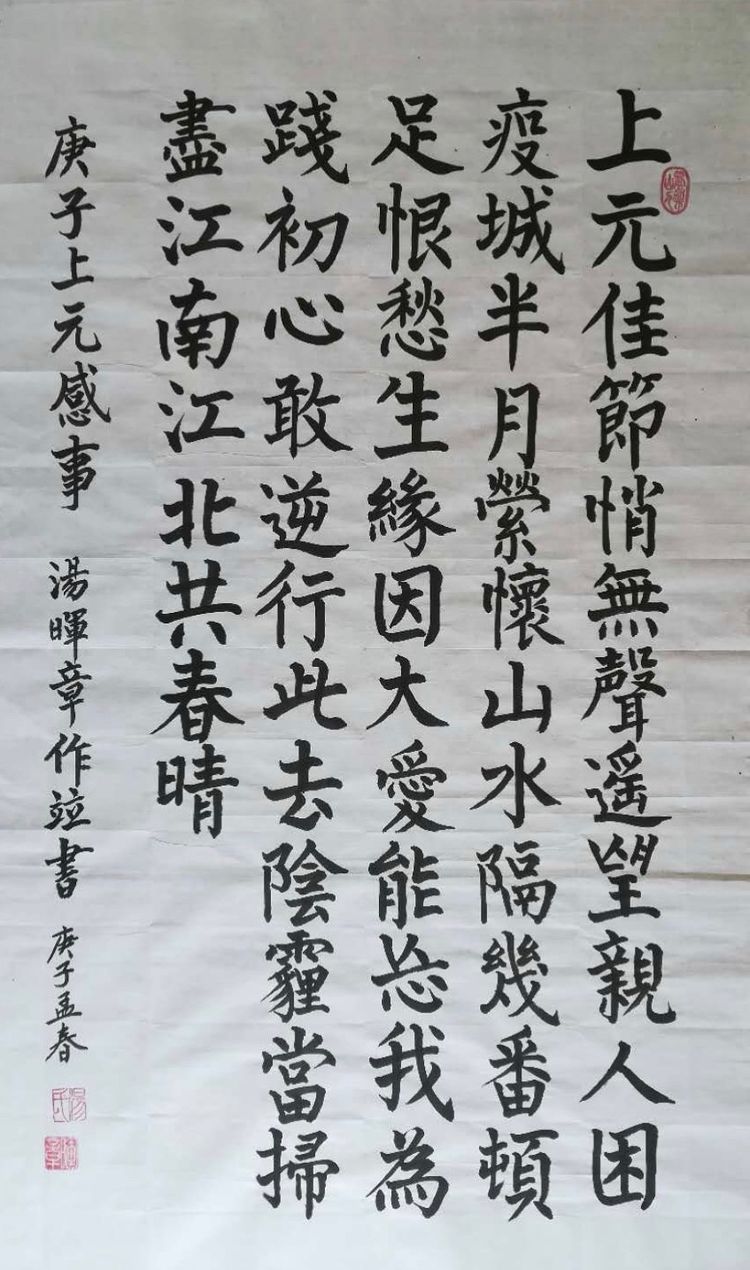 上元佳節悄無聲遥望親人困
疫城半月縈懷山水隔幾番頓
足恨愁生緣因大愛能忘我為
踐初心敢逆行此去陰霾當掃
盡江南江北共春晴
庚子上元感事 湯暉章作竝書 庚子孟春
湯氏